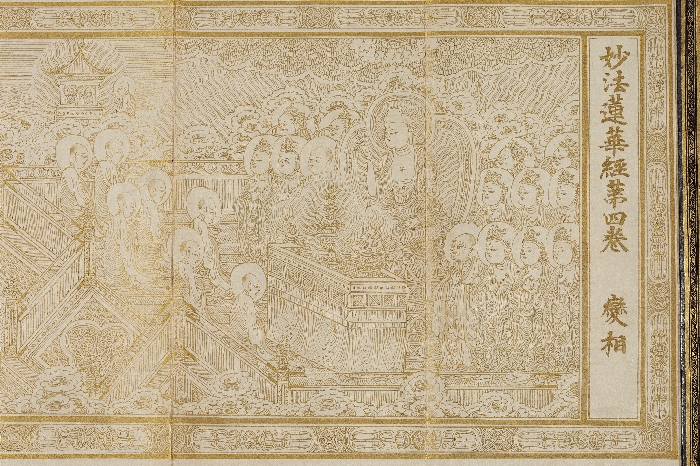 妙法蓮華經第四卷 變相